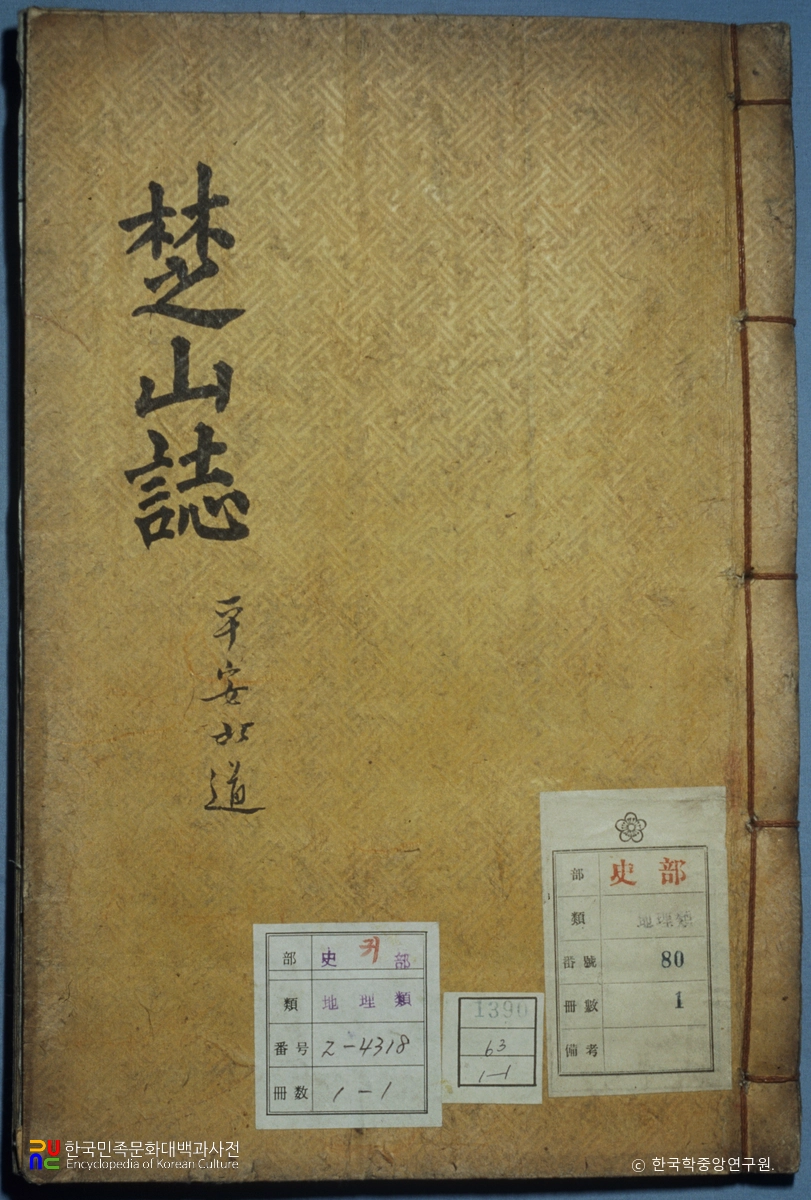 楚山誌
平安北道
部 史部
類 地理類
番號 80
冊數 1
備考
部 史 귀 部
類 地理類
番号 2-4318
冊数 1-1
1390
63
1-1
한국민족문화대백과사전
Encyclopedia of Korean Culture
© 한국학중앙연구원.